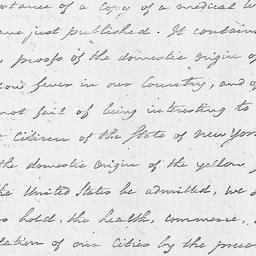 stance of a Copy of a medical w
ave just published. It contain
proofs of the domestic origin of
low fever in our Country, and of
not fail of being interesting to
Citizen of the State of New York
the domestic origin of the yellow f
the United States be admitted, we s
hold, the health, commerce,
lation of our Cities by the